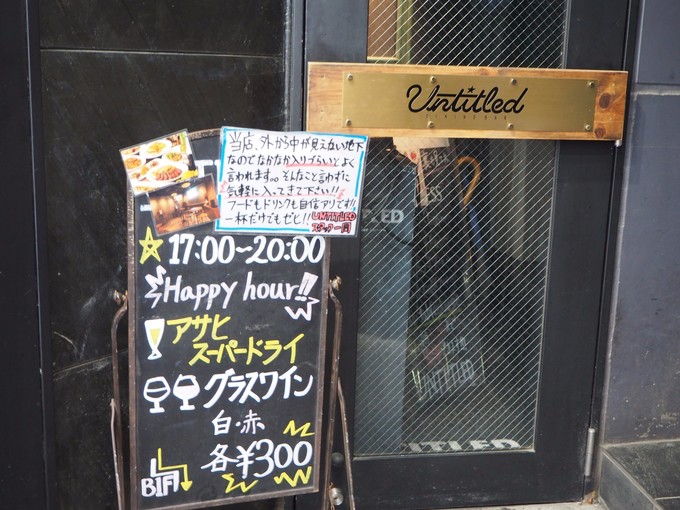 Untitled
当店、外から中が見えない地下
なのでなかなか入りづらいとよく
言われます。。そんなこと言わずに
気軽に入ってきて下さい!!
フードもドリンクも自信アリです!!
一杯だけでもゼヒ!! UNTITLED
スタッフ一同
17:00-20:00
Happy hour!!
アサヒ
スーパードライ
グラスワイン
白・赤
各¥300
B1F
UNTITLED